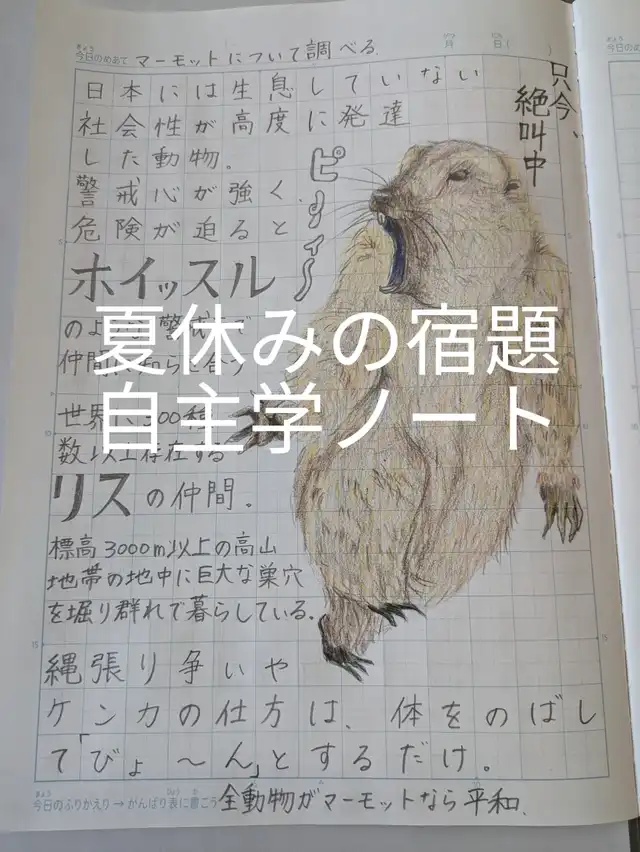 今日のめあて マーモットについて調べる
月 日( )
日本には生息していない
社会性が高度に発達
した動物。
警戒心が強く、
危険が迫ると
ホイッスル
のよ
仲間に
世界に300種
数以上存在する
リスの仲間。
標高3000m以上の高山
地帯の地中に巨大な巣穴
を掘り群れで暮らしている。
縄張り争いや
ケンカの仕方は、体をのばし
て「びょ〜ん」とするだけ。
只今、
絶叫中
ピィィ〜
夏休みの宿題
自主学ノート
きょう
今日のふりかえり→がんばり表に書こう
全動物がマーモットなら平和、